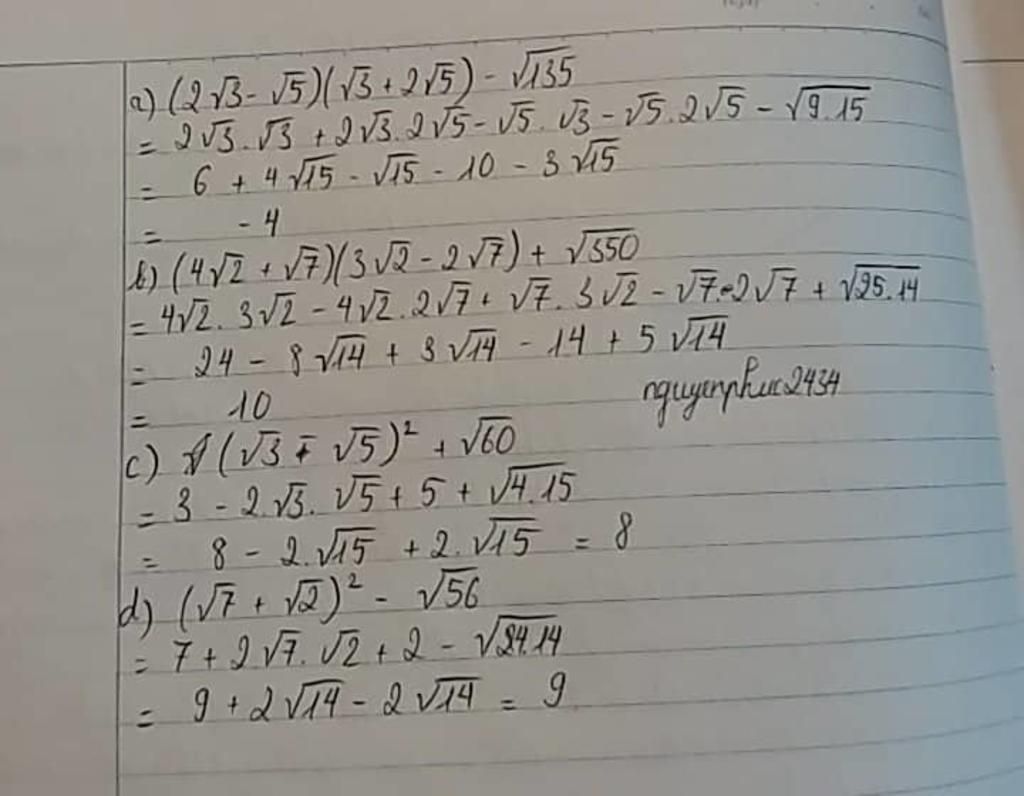 a) (2√3 - √5)(√3 + 2√5) - √135
= 2√3.√3 + 2√3.2√5 - √5.√3 - √5.2√5 - √9.15
= 6 + 4√15 - √15 - 10 - 3√15
= -4
b) (4√2 + √7)(3√2 - 2√7) + √350
= 4√2.3√2 - 4√2.2√7 + √7.3√2 - √7.2√7 + √25.14
= 24 - 8√14 + 3√14 - 14 + 5√14
= 10
nguyenphuc2434
c) (√3 - √5)² + √60
= 3 - 2√3.√5 + 5 + √4.15
= 8 - 2.√15 + 2.√15 = 8
d) (√7 + √2)² - √56
= 7 + 2√7.√2 + 2 - √4.14
= 9 + 2√14 - 2√14 = 9